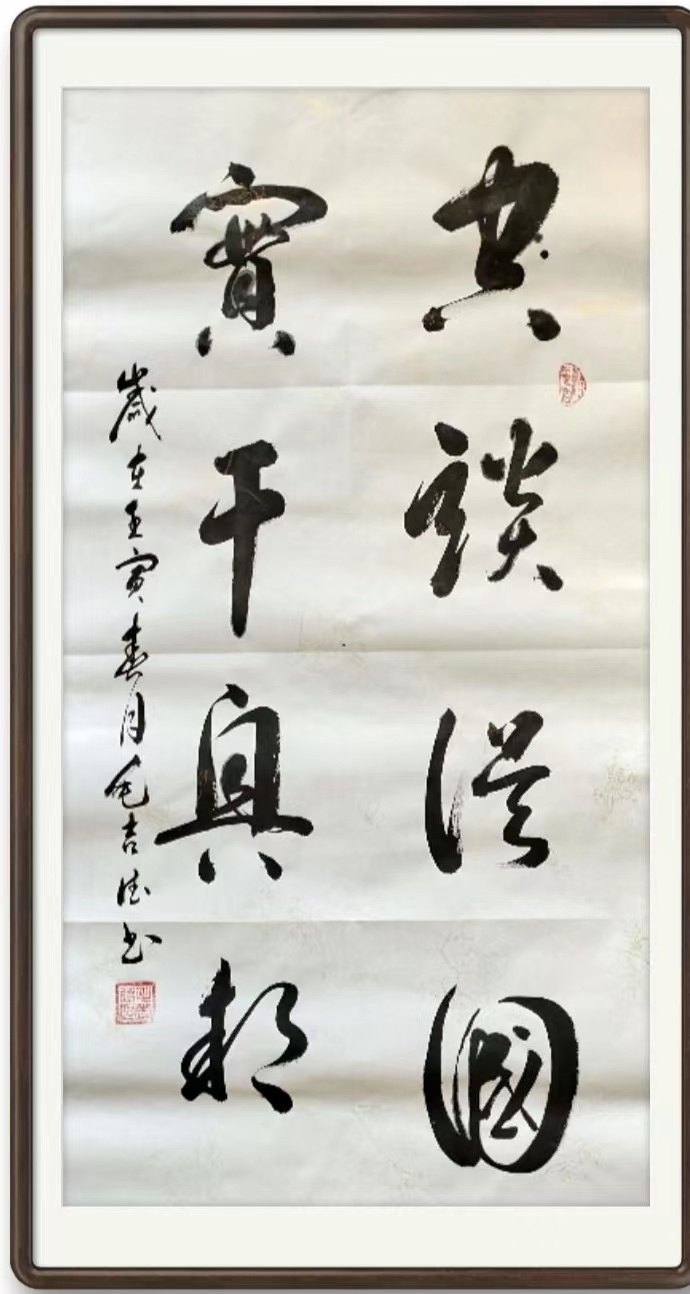 空談誤國
實干興邦
歲在壬寅春月毛吉德书